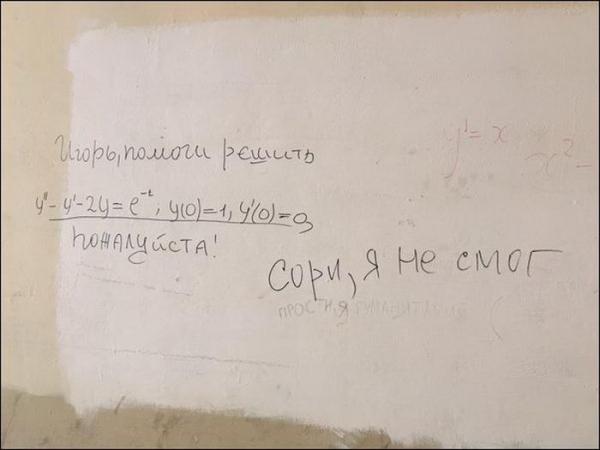 Игорь, помоги решить
y''-y'-2y=e⁻ᵗ, y(0)=1, y'(0)=0
пожалуйста!
y'=x
x²-
Сори, я не смог
ПРОСТИ, Я ГУМАНИТАРИЙ